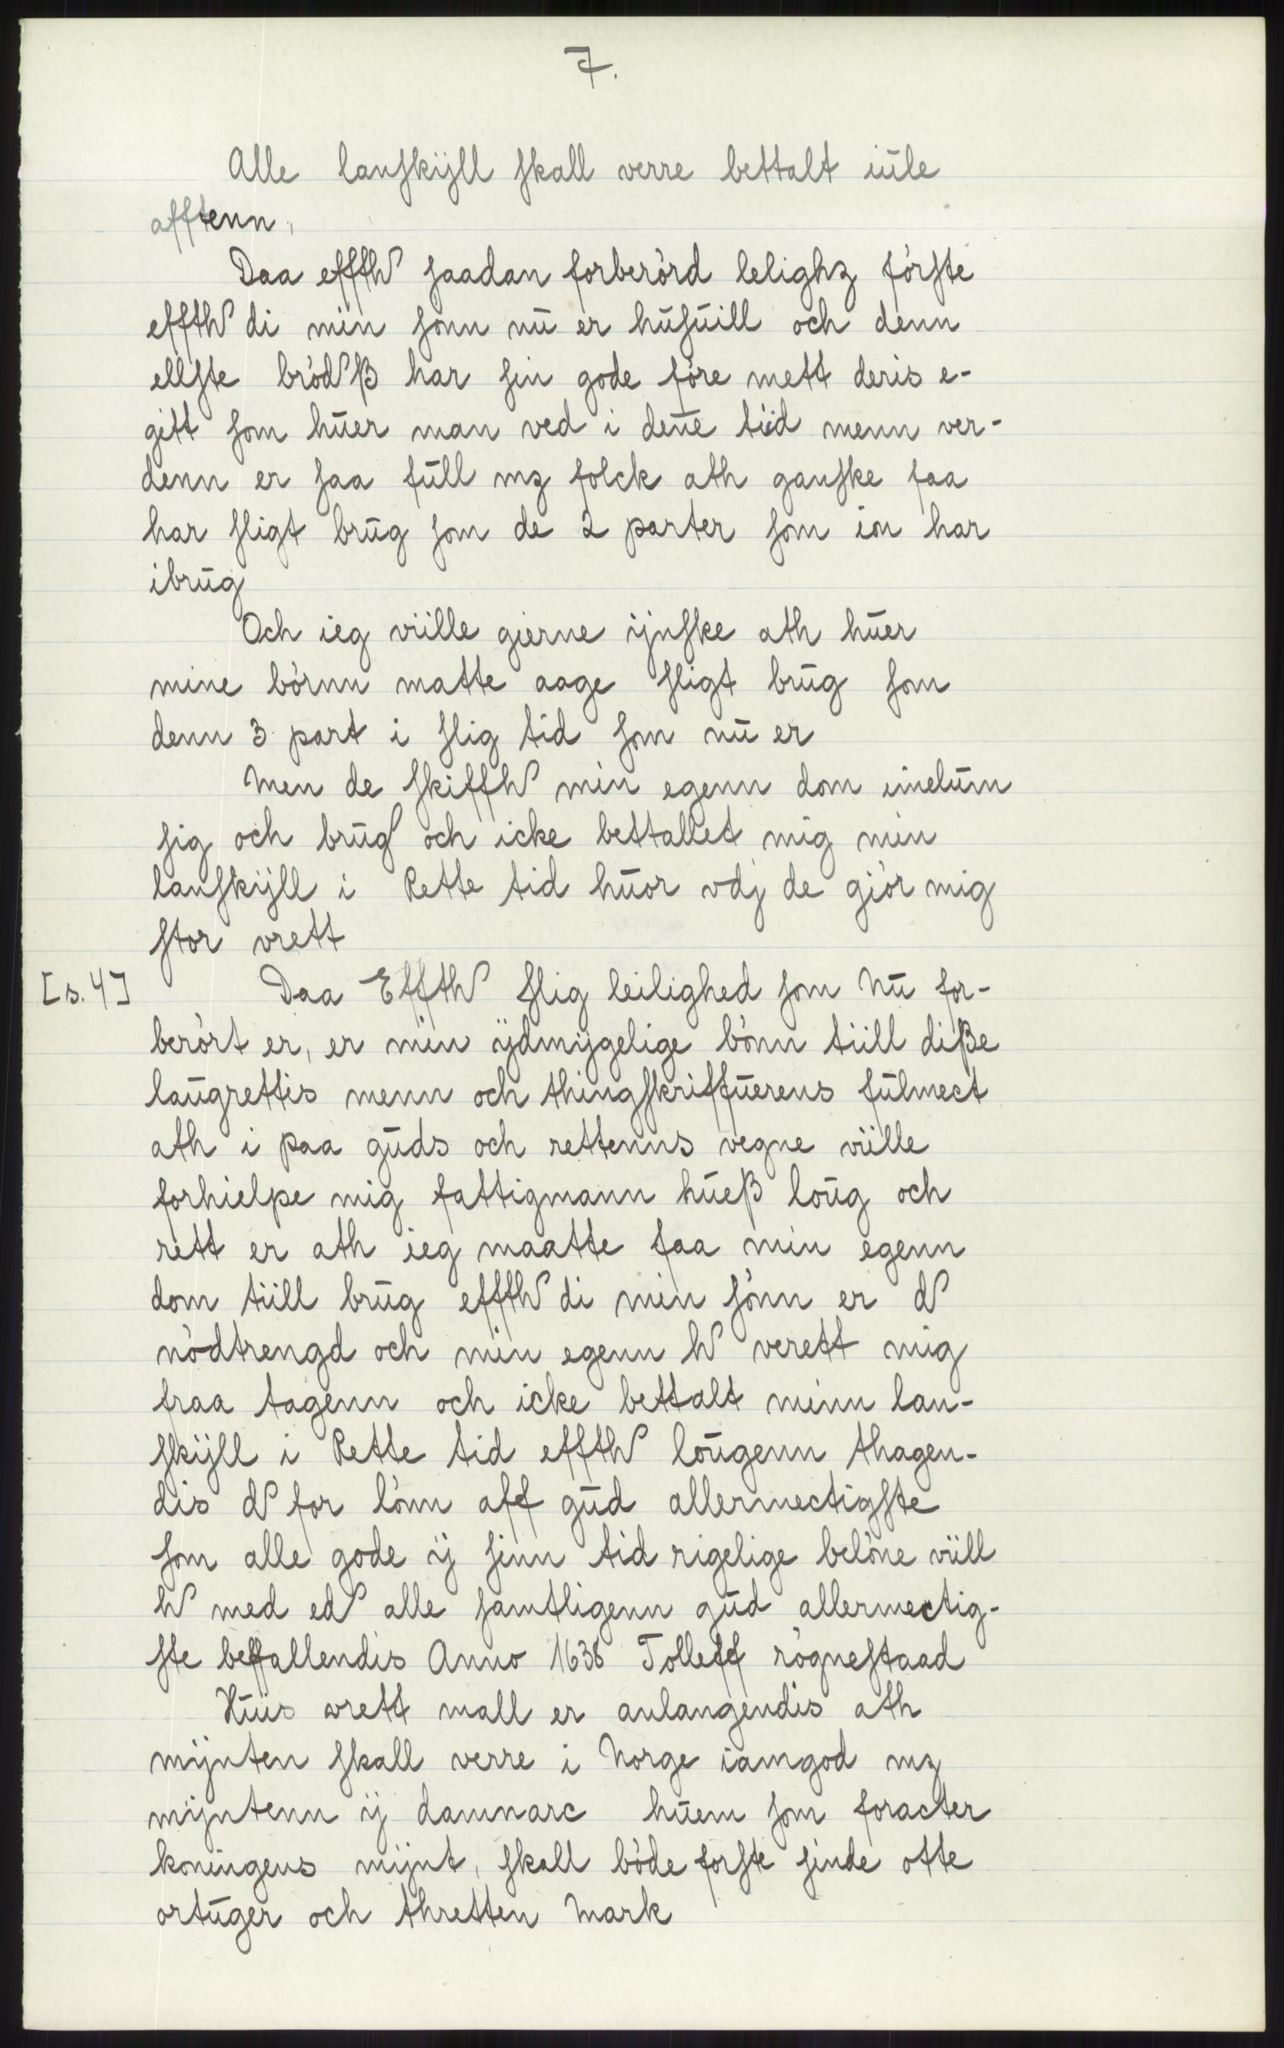 7.
Alle lanskÿll skall verre bettalt iūle
afftenn,
Daa effth saadan forberórd lelighz fórste
effth di min sonn nū er hūsūill och denn
ellste bródß har sin gode fóre mett deris e-
gitt som hūer man ved i dene tiid menn ver-
denn er saa fūll mz folck ath ganske faa
har sligt brūg som de 2 parter som ion har
ibrūg
Och ieg viille gierne ÿnske ath hūer
mine bórnn matte aage sligt brūg som
denn 3 part i slig tid som nū er
Men de skiffth min egenn dom imelūm
sig och brūg och icke bettallet mig min
lanskÿll i Rette tid hūor vdj de giór mig
stor vrett
[s. 4] Daa Effth slig leilighed som Nū for-
berórt er, er min ÿdmÿgelige bónn tiill diße
laūgrettis menn och thingskriffūerens fūlmect
ath i paa gūds och rettenns vegne viille
forhielpe mig fattigmann hūeß loūg och
rett er ath ieg maatte faa min egenn
dom tiill brūg effth di min sónn er d
nódtrengd och min egenn h verett mig
fraa tagenn och icke bettalt minn lan-
skÿll i Rette tid effth loūgenn thagen-
dis d for lónn aff gūd allermectigste
som alle gode ÿ sinn tid rigelige belóne viill
h med ed alle samtligenn gūd allermectig-
ste beffallendis Anno 1638 Tolleff rógnestaad
Hūis vrett mall er anlangendis ath
mÿnten skall verre i Norge iamgod mz
mÿntenn ÿ dannarc hūem som foracter
koningens mÿnt, skall bóde forste sinde otte
ortūger och thretten Mark